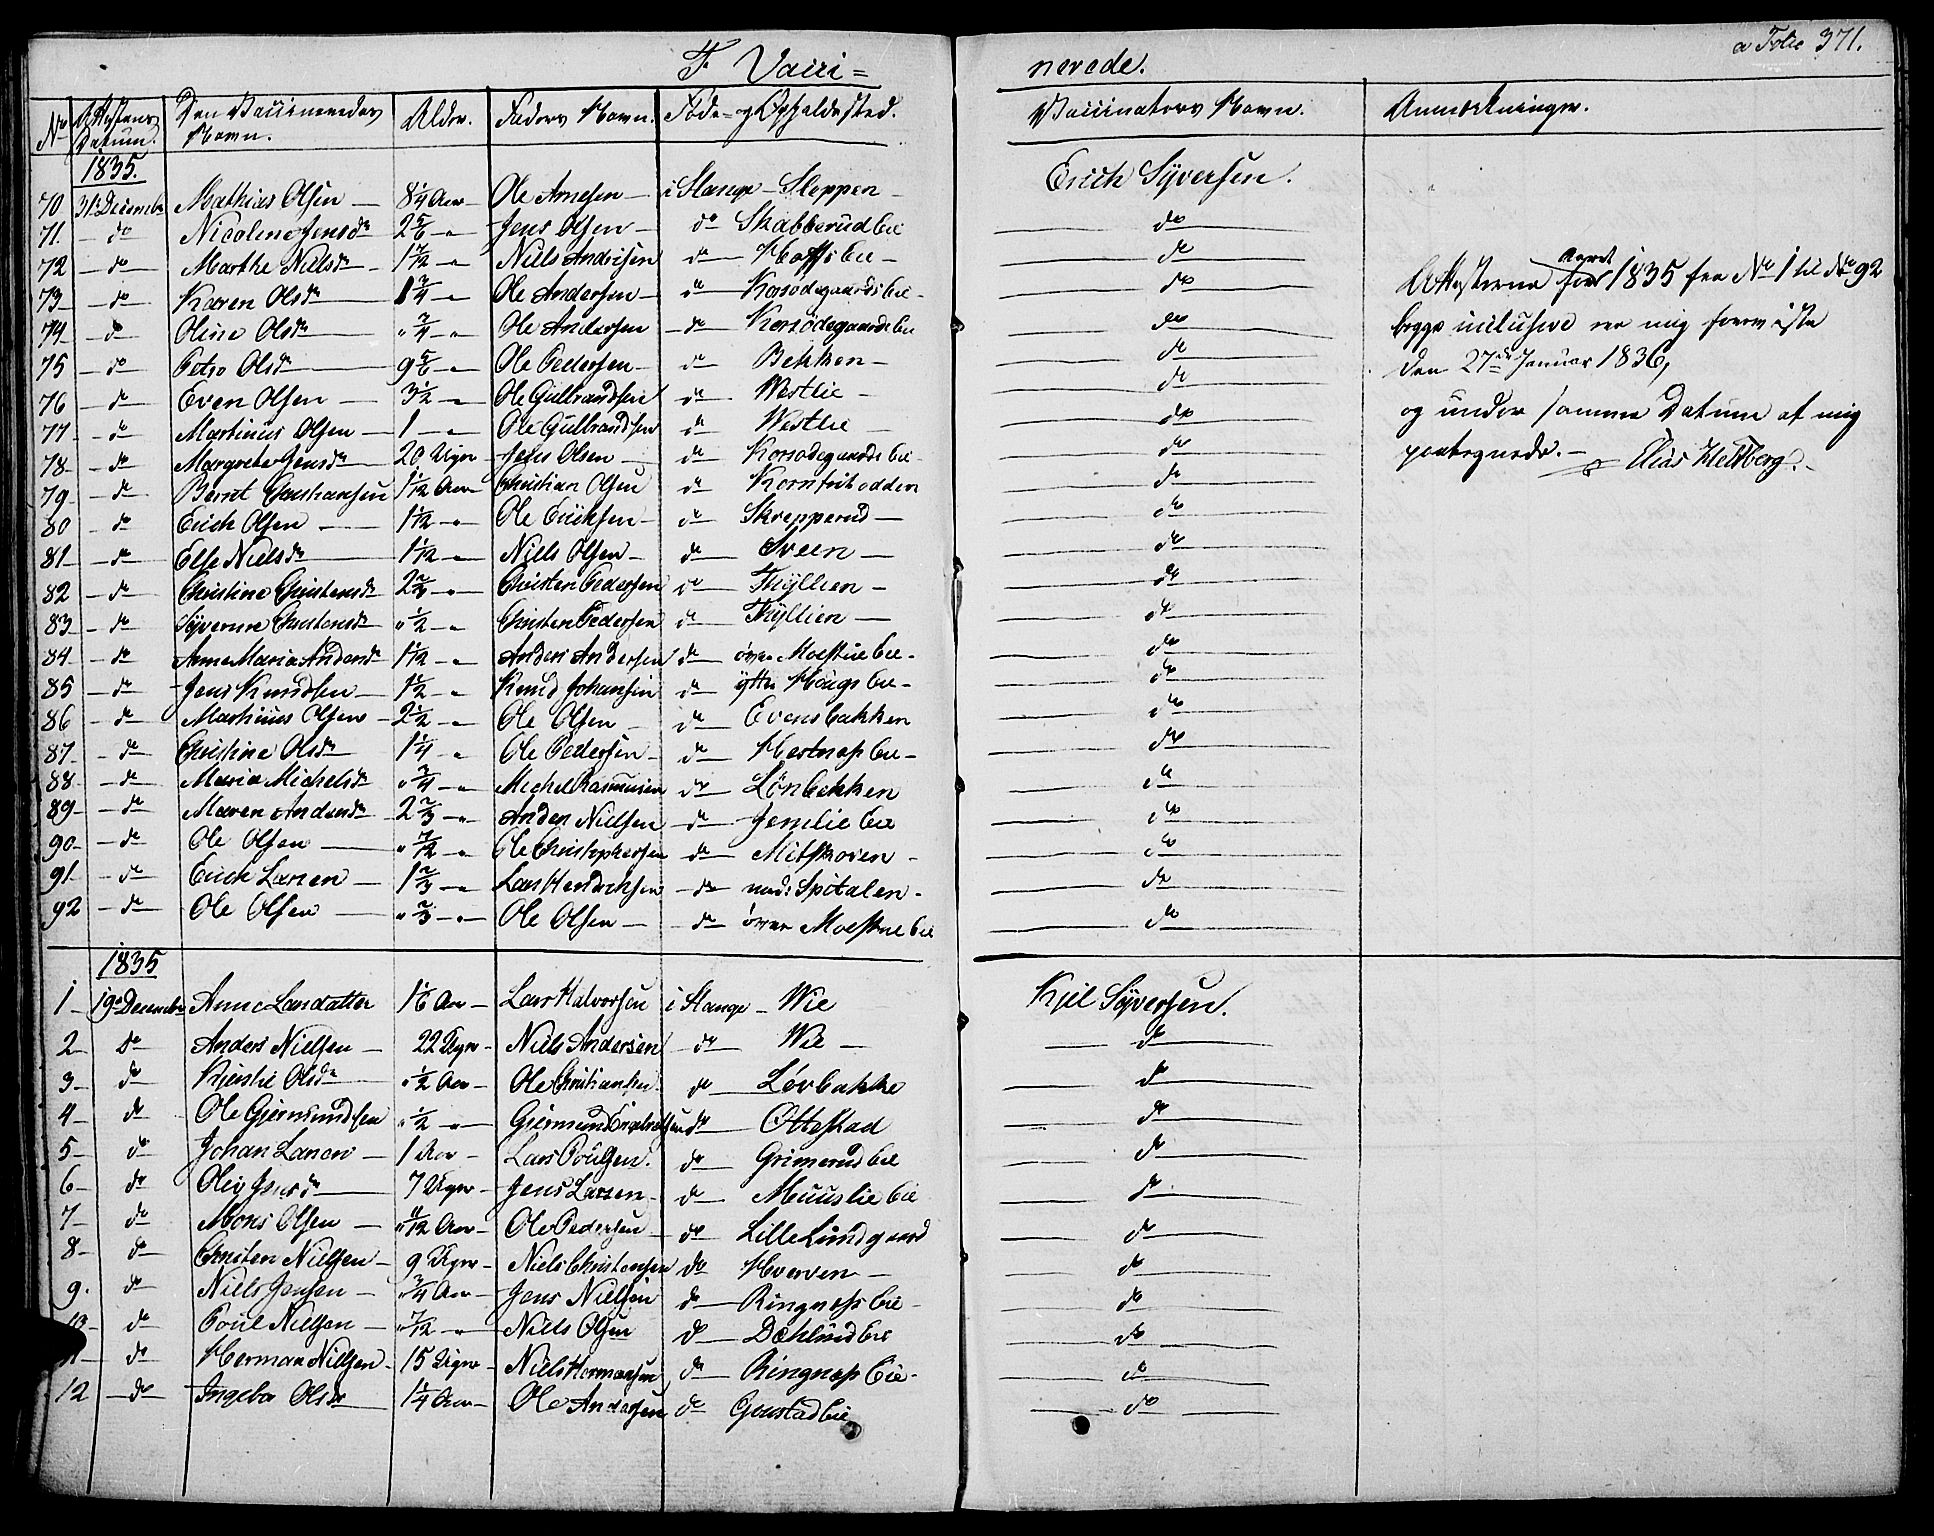 a Folie 371.
F. Vacci= nerede.
No Attestens Datum. Den Vaccineredes Navn. Alder. Faders Navn. Føde- og Opholdssted. Vaccinators Navn. Anmærkninger.
1835.
70 31te Decembr Mathias Olsen — 8 1/4 Aar Ole Arnesen — i Stange — Steppen — Erich Syversen.
71. — do Nicoline Jensdr 2 5/6 — " Jens Olsen — do Skabberud Eie do
72 — do — Marthe Nielsdr — 1 7/12 — " Niels Andersen do — Hoffs Eie — do
73 — do — Karen Olsdr 1 3/4 — " Ole Andersen — do — Korsødegaards Eie — do
74 — do Oline Olsdr " 3/4 — " Ole Andersen — do — Korsødegaards Eie do
75 — do — Petro Olsdr 9 5/6 — " Ole Pedersen — do — Bekken — do
76 — do — Even Olsen — 3 1/2 — " Ole Gulbrandsen do — Westlie — do
77 — do — Martinus Olsen — 1 — " Ole Gulbrandsen do — Westlie — do
78 — do — Margrete Jensdr 20 Uger Jens Olsen — do — Korsødegaards Eie — do
79 — do — Bernt Christiansen 1 1/12 Aar Christian Olsen do — Kornfritodden do
80 — do — Erich Olsen — 1 1/12 — " Ole Erichsen — do — Skrepperud — do
81 — do — Else Nielsdr 1 1/12 — " Niels Olsen — do — Sveen — do
82 — do — Christine Christensdr 2 2/3 — " Christen Pedersen do — Thyllien — do
83 — do — Syverine Christensdr " 1/2 — " Christen Pedersen do — Thyllien — do
84 — do — Anne Maria Andersdr 1 1/12 — " Anders Andersen do — øvre Moestue Eie — do
85 — do — Jens Knudsen — 1 1/2 — " Knud Johansen do — yttre Hougs Eie — do
86 — do — Martinus Olsen — 2 1/2 — " Ole Olsen — do — Evensbakken do
87 — do — Christine Olsdr 1 1/4 — " Ole Pedersen — do — Hestnæs Eie — do
88 — do — Maria Michelsdr " 3/4 — " Michel Rasmusen do — Lønbekken do
89 — do — Maren Andersdr 2 2/3 — " Anders Nielsen — do — Jemlie Eie do
90 — do — Ole Olsen — " 7/12 — " Ole Christophersen do — Mitskoven — do
91 — do — Erich Larsen — 1 2/3 — " Lars Hendrichsen — do — ned: Spitalen — do
92 — do — Ole Olsen — " 2/3 — " Ole Olsen — do — øvre Moestue Eie do
Attesterne for Aaret 1835 fra No 1 til No 92
begge inclusive ere mig foreviste
den 27de Januar 1836,
og under samme Datum af mig
paategnede. —
Elias Kletberg.
1835
1 — 19de Decembr Anne Larsdatter 1 1/6 Aar — Lars Halvorsen i Stange — Wie Kjel Syversen.
2 — do Anders Nielsen — 22 Uger — Niels Andersen — do — Wie — do
3 — do Kjerstie Olsdr " 1/2 Aar — Ole Christiansen do — Lövbakke do
4 — do Ole Gjermundsen " 1/2 — " Gjermund do — Ottestad do
5 — do Johan Larsen — 1 Aar — Lars Poulsen. do — Grimerud Eie do
6 — do Oliv Jensdr 7 Uger — Jens Larsen — do — Muuslie Eie do
7 — do Mons Olsen — " 11/12 Aar — Ole Pedersen — do — Lille Lundgaard do
8 — do Christen Nielsen — 9 Uger — Niels Christensen do — Hverven — do
9. do Niels Jensen — " 3/4 Aar — Jens Nielsen do — Ringnæs Eie — do
10 — do Poul Nielsen — " 7/12 — " Niels Olsen do — Dæhlind Eie do
11 — do Herman Nielsen — 15 Uger — Niels Hermansen do — Ringnæs Eie — do
12 — do Ingebor Olsdr 1 1/4 Aar — Ole Andersen do Gaustad Eie do